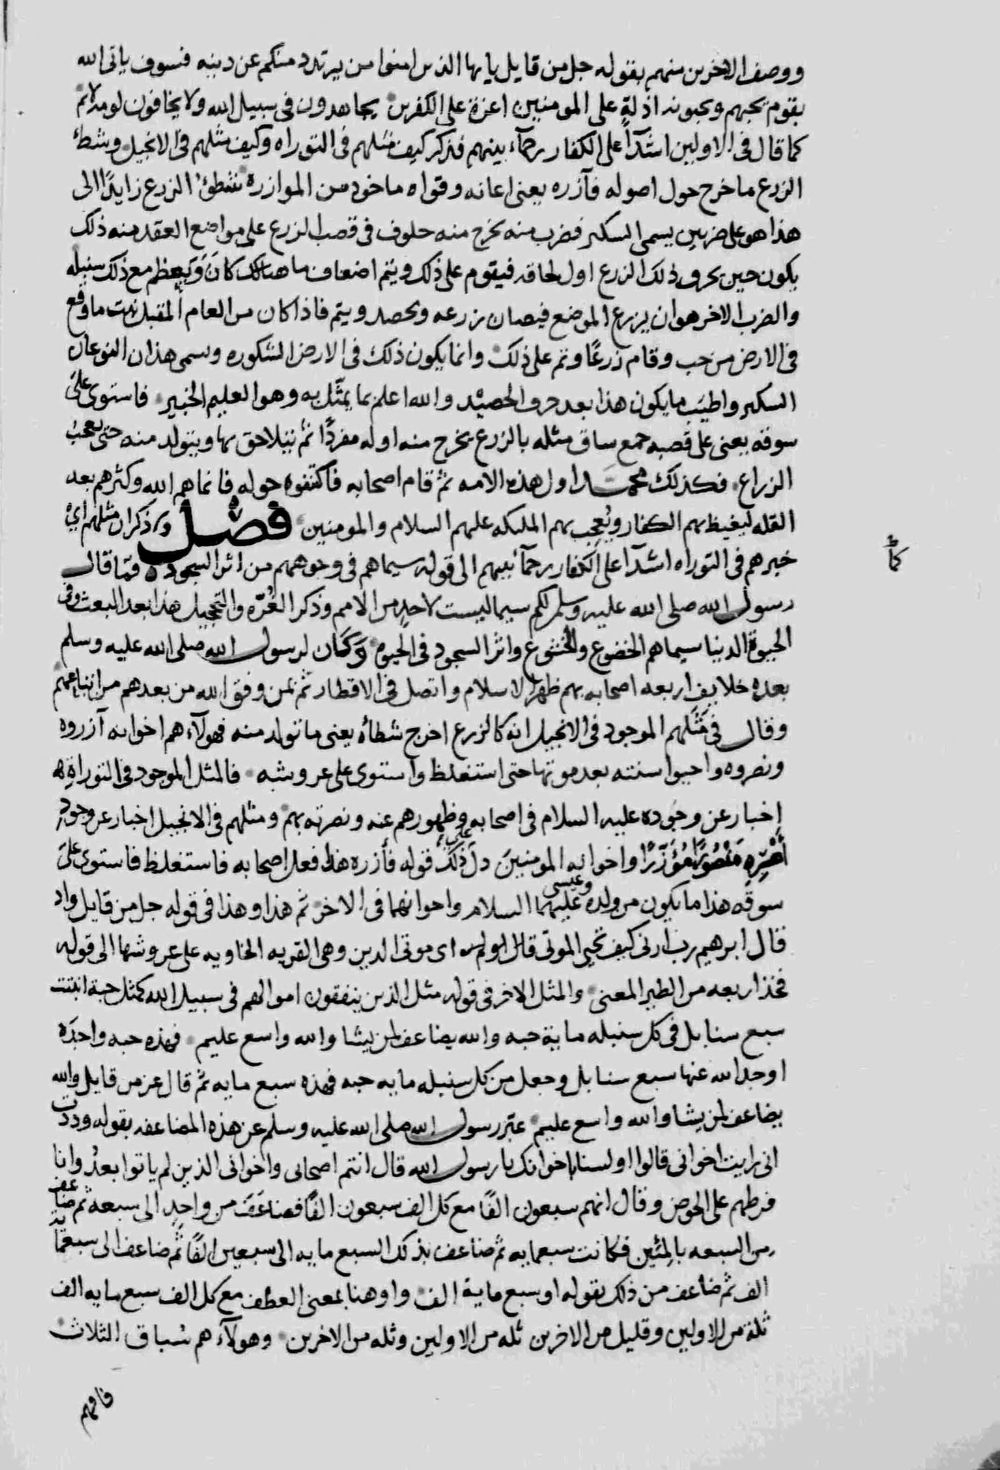 ووصف الاخرين منهم بقوله جل من قايل يايها الذين امنوا من يرتدد منكم عن دينه فسوف ياتي الله
بقوم يحبهم ويحبونه اذلة على المومنين اعزة على الكفرين يجاهدون في سبيل الله ولا يخافون لومة لائم
كما قال في الاولين اشدآ على الكفار رحمآ بينهم فذكر كيف مثلهم في التوراه وكيف مثلهم في الانجيل وشطئ
الزرع ما خرج حول اصوله فآزره يعني اعانه وقواه ماخوذ من الموازرة شطئ الزرع زايدا الى
هذا هو على ضربين يسمى السكر فضرب منه يخرج منه حلوف في قصب الزرع على مواضع العقد منه ذلك
يكون حين يحرق ذلك الزرع اول لحاقه فيقوم على ذلك ويتم اضعاف ما هنالك كان ويعظم مع ذلك سنبله
والضرب الاخر هو ان يزرع الموضع فيصان زرعه ويحصد ويتم فاذا كان من العام المقبل نبت ما وقع
في الارض من حب وقام زرعا وتم على ذلك وانما يكون ذلك في الارض الشكوره وسمى هذان النوعان
السكر واطيب ما يكون هذا بعد حرق الحصيد والله اعلم بما يمثل به وهو العليم الخبير فاستوى على
سوقه يعني على قصبه جمع ساق مثله بالزرع يخرج منه اوله مفردا ثم يتلاحق بها ويتولد منه حتى يعجب
الزراع فكذلك محمد اول هذه الامه ثم قام اصحابه فاكتنفوه حوله فانماهم الله وكثرهم بعد
القله ليغيظ بهم الكفار ويعجب بهم الملىكه عليهم السلام والمومنين فصل وذكر ان مثلهم اي
خبرهم في التوراه اشدآ على الكفار رحمآ بينهم الى قوله سيماهم في وجوههم من اثر السجود فمما قال
رسول الله صلى الله عليه وسلم لكم سيما ليست لاحد من الامم وذكر الغره والتحجيل هذا بعد البعث وفي
الحيوة الدنيا سيماهم الخضوع والخشوع واثر السجود في الحيوه وكان لرسول الله صلى الله عليه وسلم
بعده خلايف اربعه اصحابه بهم ظهر الاسلام واتصل في الاقطار ثم بمن وفق الله من بعدهم من اتباعهم
وقال في مثلهم الموجود في الانجيل انه كالزرع اخرج شطاه يعني ما تولد منه فهولآء هم اخوانه آزروه
ونصروه واحيوا سنته بعد موتها حتى استغلظ واستوى على عروشه فالمثل الموجود في التوراة
إخبار عن وجوده عليه السلام في اصحابه وظهورهم عنه ونصرته بهم ومثلهم في الانجيل اخبار عن وجود
أمره منصورا مؤزرا واخوانه المومنين دل على ذلك قوله فآزره هذا فعل اصحابه فاستغلظ فاستوى على
سوقه هذا ما يكون من ولده وعيسى عليهما السلام واخوانهما في الاخر ثم هذا وهذا في قوله جل من قايل واذ
قال ابرهيم رب ارني كيف تحيي الموتى قال اولم اي موتى الدين وهي القريه الخاويه على عروشها الى قوله
فخذ اربعه من الطير المعنى والمثل الاخر في قوله مثل الذين ينفقون اموالهم في سبيل الله كمثل حبة انبتت
سبع سنابل في كل سنبله ماية حبه والله يضاعف لمن يشا والله واسع عليم فهذه حبه واحدة
اوجد الله عنها سبع سنابل وجعل من كل سنبله مايه حبه فهذه سبع مايه ثم قال عز من قايل والله
يضاعف لمن يشا والله واسع عليم عبر رسول الله صلى الله عليه وسلم عن هذه المضاعفه بقوله وددت
اني رايت اخواني قالوا اولسنا اخوانك يا رسول الله قال انتم اصحابي واخواني الذين لم ياتوا بعد وانا
فرطهم على الحوض وقال انهم سبعون الفا مع كل الف سبعون الفا فضاعف من واحد الى سبعه ثم ضاعف
من السبعه بالمئين فكانت سبعمايه ثم ضاعف بذلك السبع مايه الى سبعين الفا ثم ضاعف الى سبعماية
الف ثم ضاعف من ذلك بقوله او سبع ماية الف واو هنا بمعنى العطف مع كل الف سبع مايه الف
ثلة من الاولين وقليل من الاخرين ثله من الاولين وثله من الاخرين وهولآء هم سباق الثلاث
فافهم